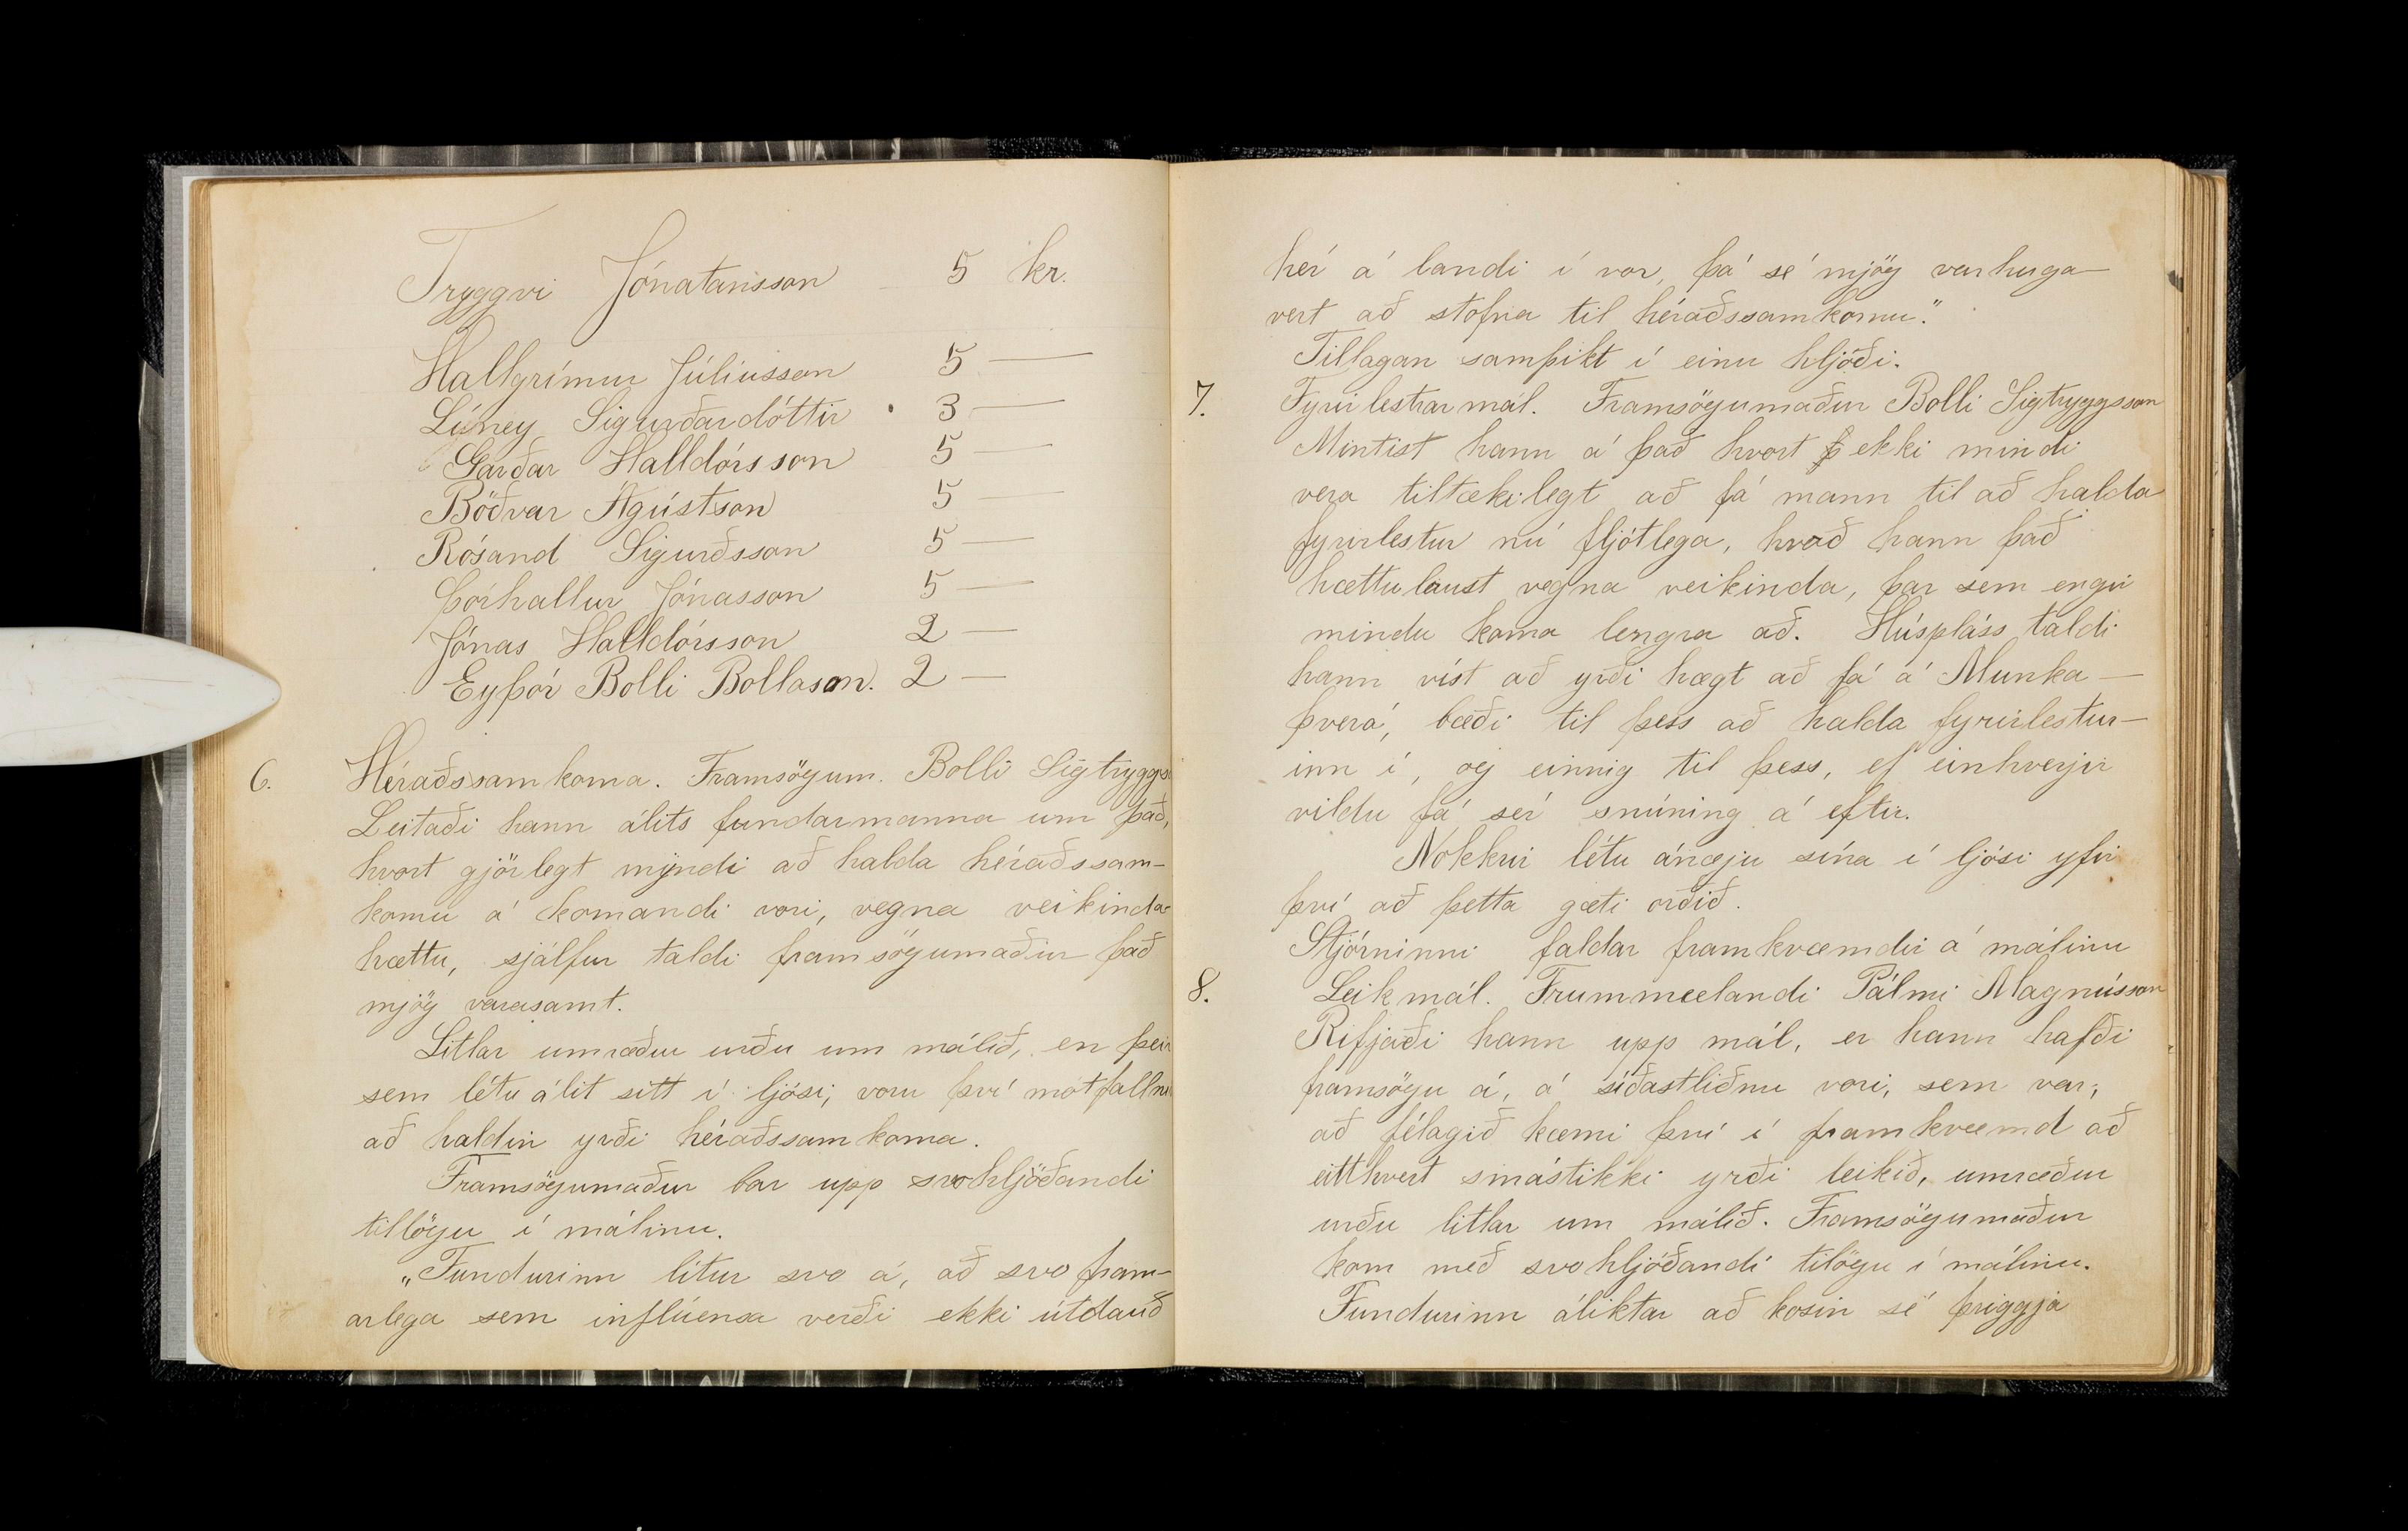 Tryggvi Jónatansson 5 kr.
Hallgrímur Júlíusson 5 —
Lúney Sigurðardóttir 3 —
Garðar Halldórsson 5 —
Böðvar Ágústson 5 —
Rósand Sigurðsson 5 —
Þórhallur Jónasson 5 —
Jónas Halldórsson 2 —
Eyþór Bolli Bollason. 2 —
6. Héraðssamkoma. Framsögum. Bolli Sigtryggs
Leitaði hann álits fundarmanna um það,
hvort gjörlegt myndi að halda héraðssam-
komu á komandi vori, vegna veikinda-
hættu, sjálfur taldi framsögumaður það
mjög varasamt.
Litlar umræður urðu um málið, en þeir
sem létu álit sitt í ljósi, voru því mótfallni
að haldin yrði héraðssamkoma.
Framsögumaður bar upp svohljóðandi
tillögu í málinu.
„Fundurinn lítur svo á, að svo fram-
arlega sem inflúensa verði ekki útdauð
hér á landi í vor, þá sé mjög varhuga-
vert að stofna til héraðssamkomu."
Tillagan samþikt í einu hljóði.
7. Fyrirlestrarmál. Framsögumaður Bolli Sigtryggsson
Mintist hann á það hvort ekki mindi
vera tiltækilegt að fá mann til að halda
fyrirlestur nú fljótlega, hvað hann það
hættulaust vegna veikinda, þar sem engir
mindu koma lengra að. Húspláss taldi
hann víst að yrði hægt að fá á Munka-
þverá, bæði til þess að halda fyrirlestur-
inn í, og einnig til þess, ef einhverjir
vildu fá sér snúning á eftir.
Nokkrir létu ánægju sína í ljósi yfir
því að þetta gæti orðið.
Stjórninni faldar framkvæmdir á málinu
8. Leikmál. Frummælandi Pálmi Magnússon
Rifjaði hann upp mál, er hann hafði
framsögu á, á síðastliðnu vori, sem var,
að félagið kæmi því í framkvæmd að
eitthvert smástikki yrði leikið, umræður
urðu litlar um málið. Framsögumaður
kom með svohljóðandi tilögu í málinu.
Fundurinn áliktar að kosin sé þriggja